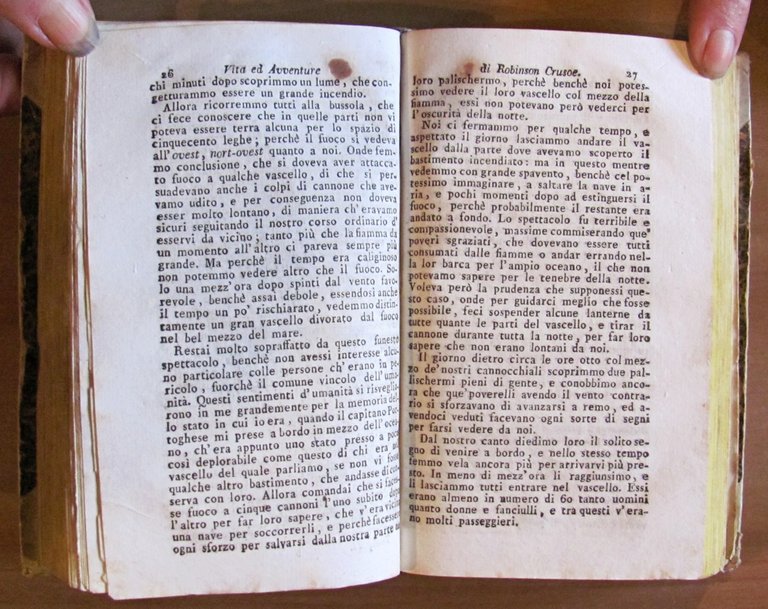 26 Vita ed Avventure
chi minuti dopo scoprimmo un lume, che con-
getturammo essere un grande incendio.
Allora ricorremmo tutti alla bussola, che
ci fece conoscere che in quelle parti non vi
poteva essere terra alcuna per lo spazio di
cinquecento leghe; perchè il fuoco si vedeva
all'ovest, nort-ovest quanto a noi. Onde fem-
mo conclusione, che si doveva aver attacca-
to fuoco a qualche vascello, di che si per-
suadevano anche i colpi di cannone che ave-
vamo udito, e per conseguenza non doveva
esser molto lontano, di maniera ch'eravamo
sicuri seguitando il nostro corso ordinario d'
esservi da vicino; tanto più che la fiamma da
un momento all'altro ci pareva sempre più
grande. Ma perchè il tempo era caliginoso
non potemmo vedere altro che il fuoco. So-
lo una mezz'ora dopo spinti dal vento favo-
revole, benchè assai debole, essendosi anche
il tempo un po' rischiarato, vedemmo distin-
tamente un gran vascello divorato dal fuoco
nel bel mezzo del mare.
Restai molto sopraffatto da questo funesto
spettacolo, benchè non avessi interesse alcu-
no particolare colle persone ch'erano in pe-
ricolo, fuorchè il comune vincolo dell'uma-
nità. Questi sentimenti d'umanità si risveglia-
rono in me grandemente per la memoria del-
lo stato in cui io era, quando il capitano Por-
toghese mi prese a bordo in mezzo dell'ocea-
no, ch'era appunto uno stato presso a poco
così deplorabile come questo di chi era nel
vascello del quale parliamo, se non vi fosse
qualche altro bastimento, che andasse di con-
serva con loro. Allora comandai che si facesse
se fuoco a cinque cannoni l'uno subito dopo
l'altro per far loro sapere, che v'era vicina
una nave per soccorrerli, e perchè facessero
ogni sforzo per salvarsi dalla nostra parte nel
di Robinson Crusoe. 27
loro palischermo, perchè benchè noi potes-
simo vedere il loro vascello col mezzo della
fiamma, essi non potevano però vederci per
l'oscurità della notte.
Noi ci fermammo per qualche tempo, e
aspettato il giorno lasciammo andare il va-
scello dalla parte dove avevamo scoperto il
bastimento incendiato: ma in questo mentre
vedemmo con grande spavento, benchè cel po-
tessimo immaginare, a saltare la nave in a-
ria, e pochi momenti dopo ad estinguersi il
fuoco, perchè probabilmente il restante era
andato a fondo. Lo spettacolo fu terribile e
compassionevole, massime commiserando que'
poveri sgraziati, che dovevano essere tutti
consumati dalle fiamme o andar errando nel-
la lor barca per l'ampio oceano, il che non
potevamo sapere per le tenebre della notte.
Voleva però la prudenza che supponessi que-
sto caso, onde per guidarci meglio che fosse
possibile, feci sospender alcune lanterne da
tutte quante le parti del vascello, e tirar il
cannone durante tutta la notte, per far loro
sapere che non erano lontani da noi.
Il giorno dietro circa le ore otto col mez-
zo de' nostri cannocchiali scoprimmo due pal-
lischermi pieni di gente, e conobbimo anco-
ra che que' poverelli avendo il vento contra-
rio si sforzavano di avanzarsi a remo, ed a-
vendoci veduti facevano ogni sorte di segni
per farsi vedere da noi.
Dal nostro canto diedimo loro il solito se-
gno di venire a bordo, e nello stesso tempo
femmo vela ancora più per arrivarvi più pre-
sto. In meno di mezz'ora li raggiunsimo, e
li lasciammo tutti entrare nel vascello. Essi
erano almeno in numero di 60 tanto uomini
quanto donne e fanciulli, e tra questi v'era-
no molti passeggieri.